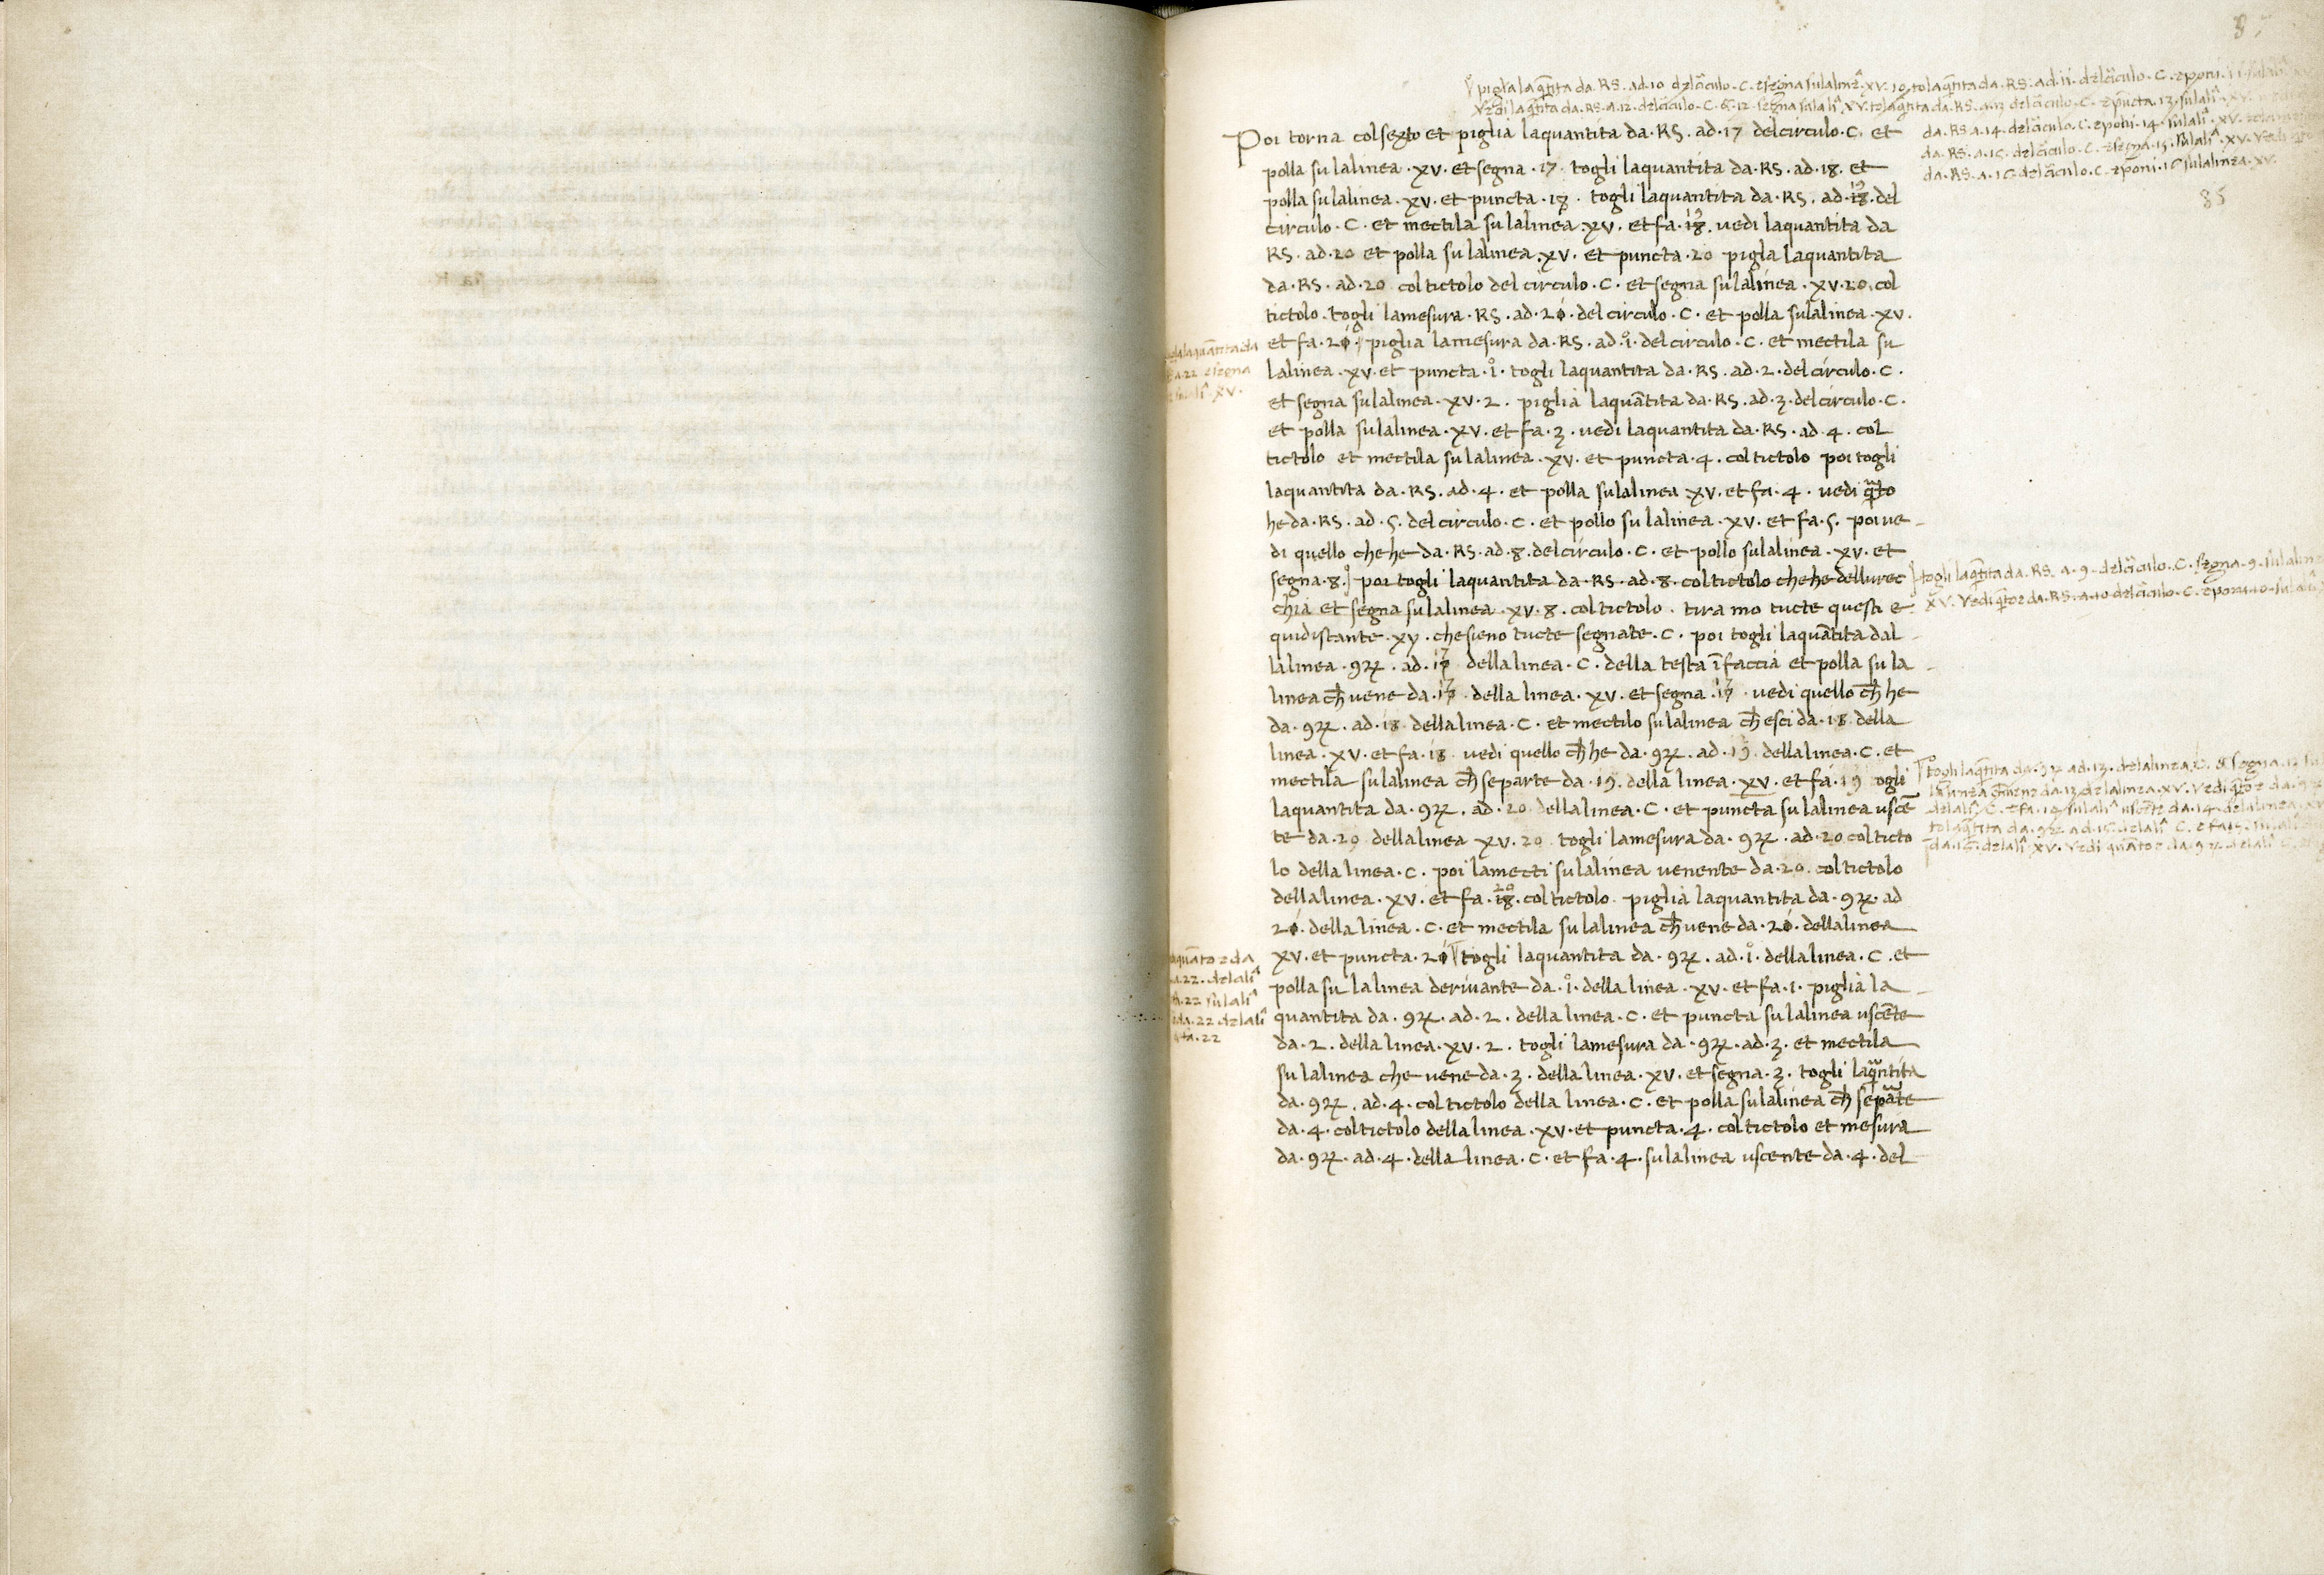 piglia la q̃tita da . RS . ad . 10 del c̃iculo . C . e segna su la linea . xv . 10 tol la q̃tita da . RS . ad . 11 . del c̃iculo . C . e poni . 11
Vedi la q̃tita da . RS . a . 12 . del c̃iculo . C . & . 12 . segna su la lĩ . XV . tol la q̃tita da . RS . a . 13 del c̃iculo . C . e puncta . 13 . su la lĩ . XV .
da . RS . a . 14 . del c̃iculo . C . e poni . 14 . su la lĩ . XV .
da . RS . a . 15 . del c̃iculo . C . e segna . 15 . su la lĩ . XV . Vedi
da . RS . a . 16 . del c̃iculo . C . e poni . 16 su la linea . XV .
85
Poi torna col sexto et piglia laquantita da . RS . ad . 17 del circulo . C . et
polla su lalinea . xv . et segna . 17 . togli laquantita da . RS . ad . 18 . et
polla su lalinea . xv . et puncta . 18 . togli laquantita da . RS . ad . 19 . del
circulo . C . et mectila su lalinea xv . et fa . 19 . vedi laquantita da
RS . ad . 20 et polla su lalinea . xv . et puncta . 20 piglia laquantita
da . RS . ad . 20 col tictolo del circulo . C . et segna su lalinea . xv . 20 . col
tictolo . togli lamesura . RS . ad . 21 . del circulo . C . et polla su lalinea . xv .
et fa . 21 . piglia lamesura da . RS . ad . 1 . del circulo . C . et mectila su
lalinea . xv . et puncta . 1 . togli laquantita da . RS . ad . 2 . del circulo . C .
et segna su lalinea . xv . 2 . piglia laquãtita da . RS . ad . 3 . del circulo . C .
et polla su lalinea . xv . et fa . 3 . vedi laquantita da . RS . ad . 4 . col
tictolo et mectila su lalinea . xv . et puncta . 4 . col tictolo poi togli
laquantita da . RS . ad . 4 . et polla su lalinea xv . et fa . 4 . vedi q̃to
he da . RS . ad . 5 . del circulo . C . et pollo su lalinea . xv . et fa . 5 . poi ve
di quello che he da . RS . ad . 8 . del circulo . C . et pollo su lalinea . xv . et
segna . 8 . poi togli laquantita da . RS . ad . 8 . col tictolo che he dellurec
chia et segna su lalinea . xv . 8 . col tictolo . tira mo tucte questi e
quidistante . xy . che sieno tucte segnate . C . poi togli laquãtita dal
lalinea . 9ꝝ . ad . 17 della linea . C . della testa ĩ faccia et polla su la
linea ch̃ vene da . 17 . della linea . xv . et segna . 17 . vedi quello ch̃ he
da . 9ꝝ . ad . 18 della linea . C . et mectilo su lalinea ch̃ esci da . 18 della
linea . xv . et fa . 18 vedi quello ch̃ he da . 9ꝝ . ad . 19 della linea . C . et
mectila su lalinea ch̃ se parte da . 19 . della linea . xv . et fa . 19 ogli
laquantita da . 9ꝝ . ad . 20 della linea . C . et puncta su lalinea uscẽ
te da . 20 della linea xv . 20 togli lamesura da . 9ꝝ . ad . 20 col ticto
lo della linea . C . poi la mecti su lalinea venente da . 20 . col tictolo
della linea . xv . et fa . 20 . col tictolo . piglia laquantita da . 9ꝝ . ad
21 . della linea . C . et mectila su lalinea ch̃ vene da . 21 . della linea
xv . et puncta . 21 togli laquantita da . 9ꝝ . ad . 1 . della linea . C . et
polla su lalinea derivante da . 1 . della linea . xv . et fa . 1 . piglia la
quantita da . 9ꝝ . ad . 2 . della linea . C . et puncta su lalinea uscẽte
da . 2 . della linea . xv . 2 . togli lamesura da . 9ꝝ . ad . 3 . et mectila
su lalinea che vene da . 3 . della linea . xv . et segna . 3 . togli laq̃ntita
da . 9ꝝ . ad . 4 . col tictolo della linea . C . et polla su lalinea ch̃ se pãte
da . 4 . col tictolo della linea . xv . et puncta . 4 . col tictolo et mesura
da . 9ꝝ . ad . 4 . della linea . C . et fa . 4 . su lalinea uscente da . 4 . del
la quãtita da
a . 22 e segna
lĩ . XV .
quãto e da
a . 22 . de la lĩ
22 su la lĩ
da . 22 de la lĩ
fa . 22
togli la q̃tita da . RS . a . 9 . del c̃iculo . C . segna . 9 . su la linea
XV . Vedi q̃to e da . RS . a . 10 del c̃iculo . C . e poni . 10 . su la
togli la q̃tita da . 9ꝝ ad . 13 . de la linea . C . & segna . 13
la linea ch̃ vene da . 13 de la linea . XV . Vedi q̃to e da . 9ꝝ
de la lĩ . C . e fa . 14 su la lĩ uscẽte da . 14 . de la linea
tol la q̃tita da . 9ꝝ ad . 15 . de la lĩ C . e fa 15 .
da . 15 . de la lĩ XV . Vedi quãto e da . 9ꝝ